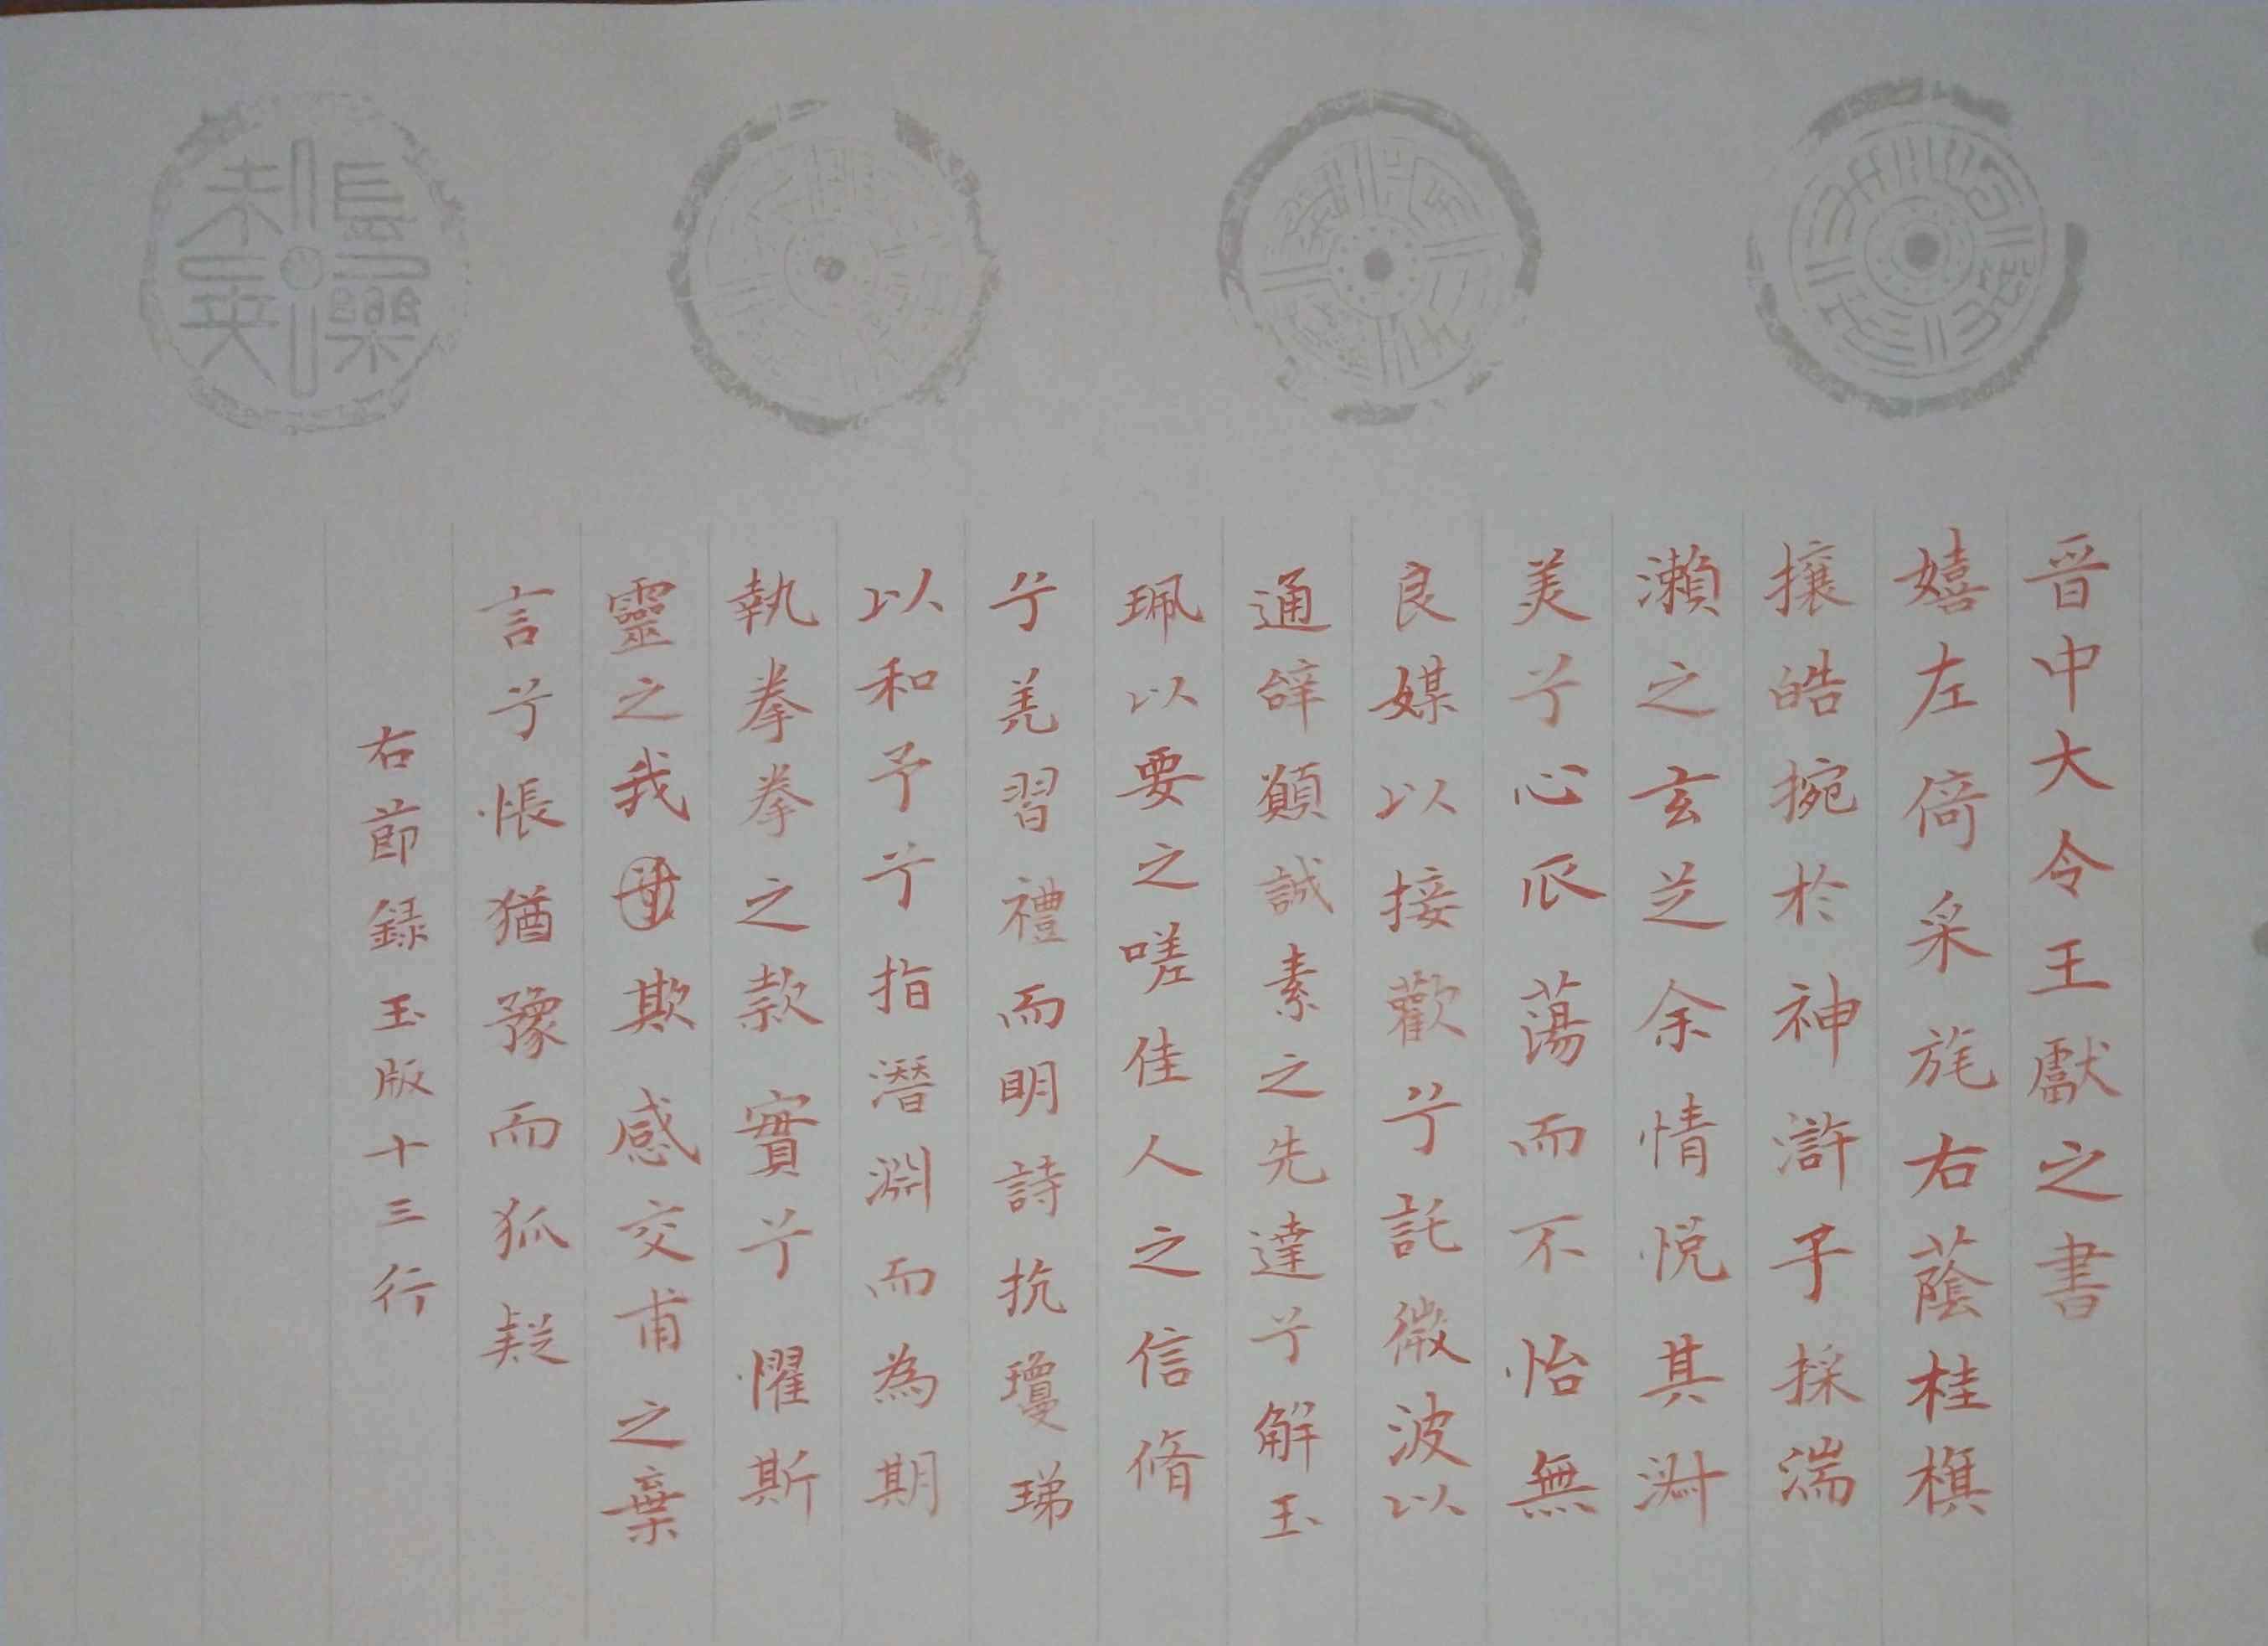 晉中大令王獻之書
嬉左倚采旄右蔭桂椇
攘皓捥於神滸予採湍
瀨之玄芝余情悅其淋
美兮心𠂢蕩而不怡無
良媒以接歡兮託微波以
通辭願誠素之先達兮解玉
珮以要之嗟佳人之信脩
兮羌習禮而明詩抗瓊珶
以和予兮指潛淵而為期
執拳拳之款實兮懼斯
靈之我欺感交甫之棄
言兮悵猶豫而狐疑
右節録玉版十三行
長樂未央